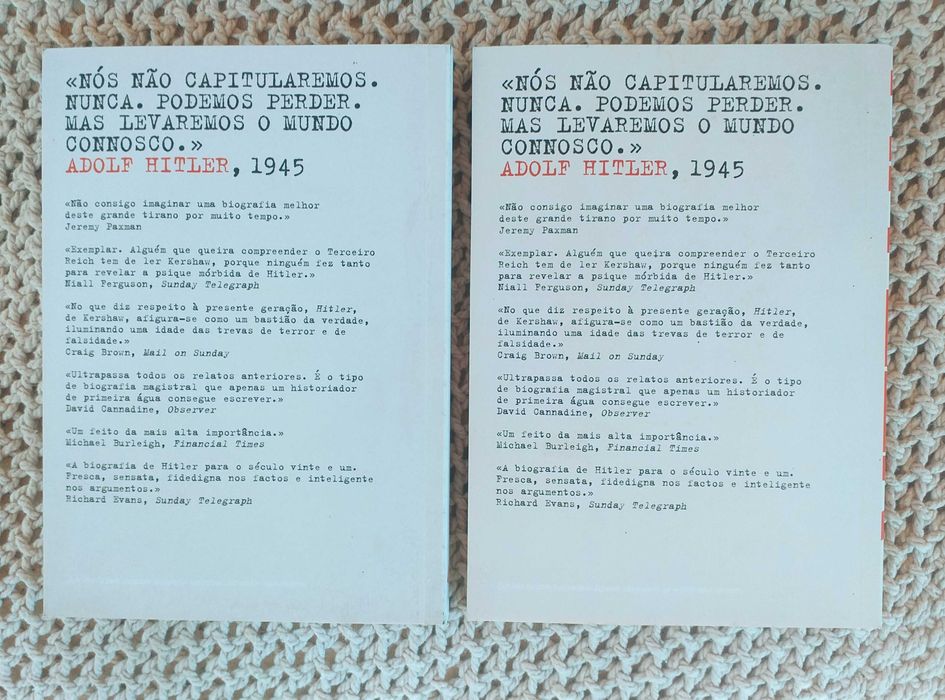 «NÓS NÃO CAPITULAREMOS.
NUNCA. PODEMOS PERDER.
MAS LEVAREMOS O MUNDO
CONNOSCO.»
ADOLF HITLER, 1945
«Não consigo imaginar uma biografia melhor
deste grande tirano por muito tempo.»
Jeremy Paxman
«Exemplar. Alguém que queira compreender o Terceiro
Reich tem de ler Kershaw, porque ninguém fez tanto
para revelar a psique mórbida de Hitler.»
Niall Ferguson, Sunday Telegraph
«No que diz respeito à presente geração, Hitler,
de Kershaw, afigura-se como um bastião da verdade,
iluminando uma idade das trevas de terror e de
falsidade.»
Craig Brown, Mail on Sunday
«Ultrapassa todos os relatos anteriores. É o tipo
de biografia magistral que apenas um historiador
de primeira água consegue escrever.»
David Cannadine, Observer
«Um feito da mais alta importância.»
Michael Burleigh, Financial Times
«A biografia de Hitler para o século vinte e um.
Fresca, sensata, fidedigna nos factos e inteligente
nos argumentos.»
Richard Evans, Sunday Telegraph
«NÓS NÃO CAPITULAREMOS.
NUNCA. PODEMOS PERDER.
MAS LEVAREMOS O MUNDO
CONNOSCO.»
ADOLF HITLER, 1945
«Não consigo imaginar uma biografia melhor
deste grande tirano por muito tempo.»
Jeremy Paxman
«Exemplar. Alguém que queira compreender o Terceiro
Reich tem de ler Kershaw, porque ninguém fez tanto
para revelar a psique mórbida de Hitler.»
Niall Ferguson, Sunday Telegraph
«No que diz respeito à presente geração, Hitler,
de Kershaw, afigura-se como um bastião da verdade,
iluminando uma idade das trevas de terror e de
falsidade.»
Craig Brown, Mail on Sunday
«Ultrapassa todos os relatos anteriores. É o tipo
de biografia magistral que apenas um historiador
de primeira água consegue escrever.»
David Cannadine, Observer
«Um feito da mais alta importância.»
Michael Burleigh, Financial Times
«A biografia de Hitler para o século vinte e um.
Fresca, sensata, fidedigna nos factos e inteligente
nos argumentos.»
Richard Evans, Sunday Telegraph